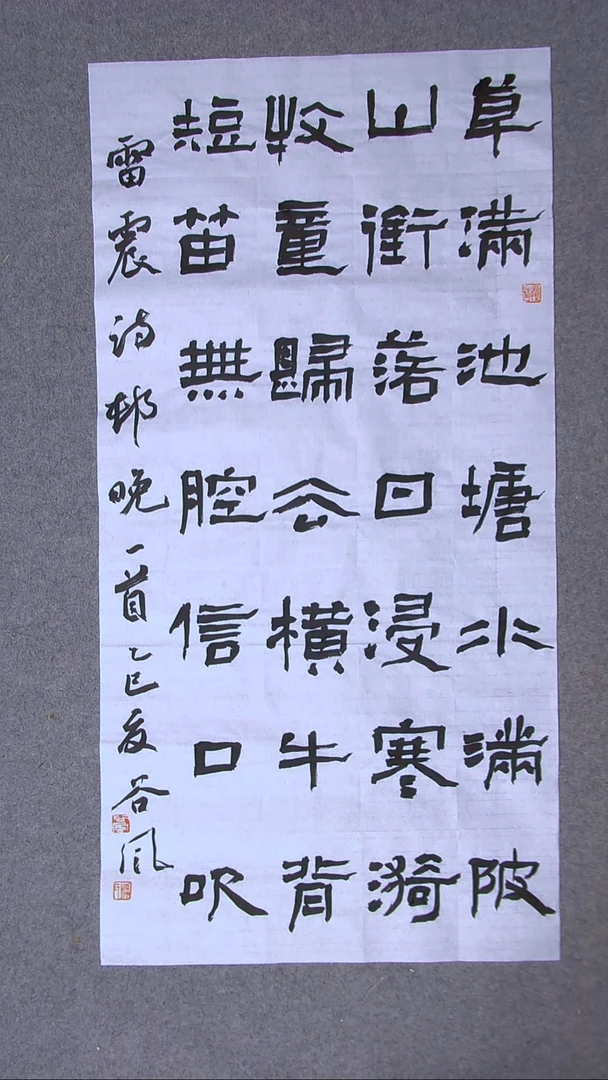 草滿池塘水滿陂
山衔落日浸寒漪
牧童歸去橫牛背
短笛無腔信口吹
雷震诗邨晚一首乙巳夏谷风